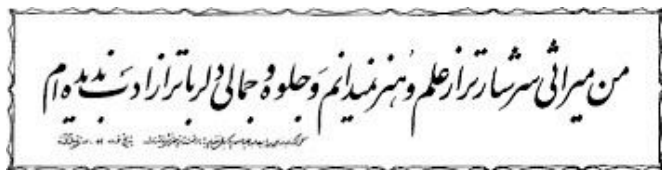 من میراثی سرشارتر از علم و هنر نمیدانم و جلوه و جمالی دلرباتر از ادب ندیده‌ام